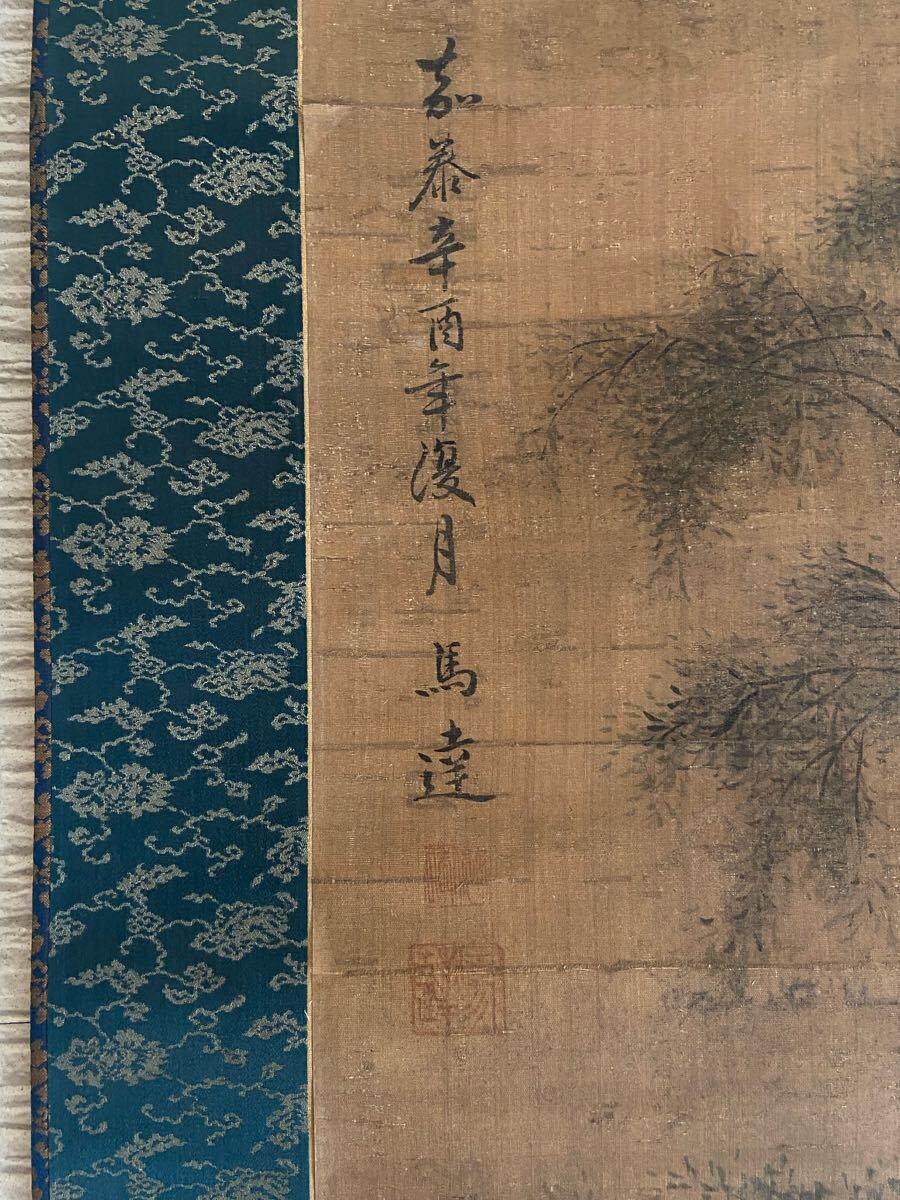 嘉泰辛酉年復月 馬逵